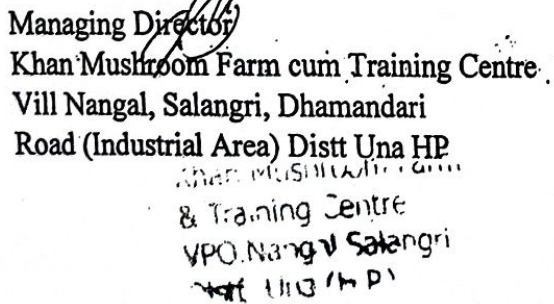 Managing Director
Khan Mushroom Farm cum Training Centre
Vill Nangal, Salangri, Dhamandari
Road (Industrial Area) Distt Una HP
Khan Mushroom Farm
& Training Centre
VPO.Nangal Salangri
Distt. Una (H.P)